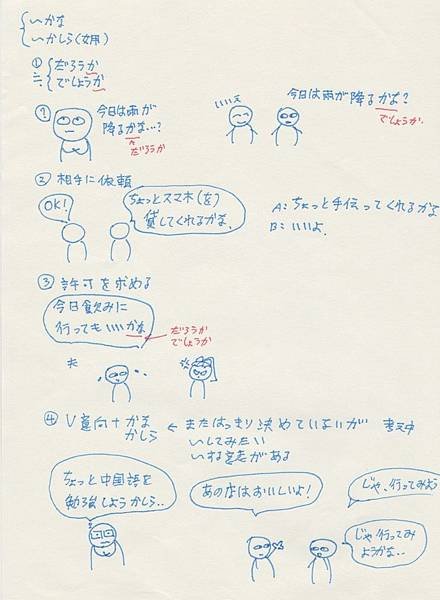 〜かな
〜かしら(女用)
① だろうか
≒ でしょうか
?
今日は雨が
降るかな…?
だろうか
いいえ
今日は雨が降るかな?
でしょうか
② 相手に依頼
OK!
ちょっとスマホ(を)
貸してくれるかな
A:ちょっと手伝ってくれるかな
B:いいよ.
③ 許可を求める
今日飲みに
行ってもいいかな
だろうか
でしょうか
夫
④ V意向+かな
かしら
← まだはっきり決めていないが 考え中
〜してみたい
〜する意志がある
ちょっと中国語を
勉強しようかしら..
あの店はおいしいよ!
じゃ、行ってみよう
じゃ、行ってみ
ようかな..